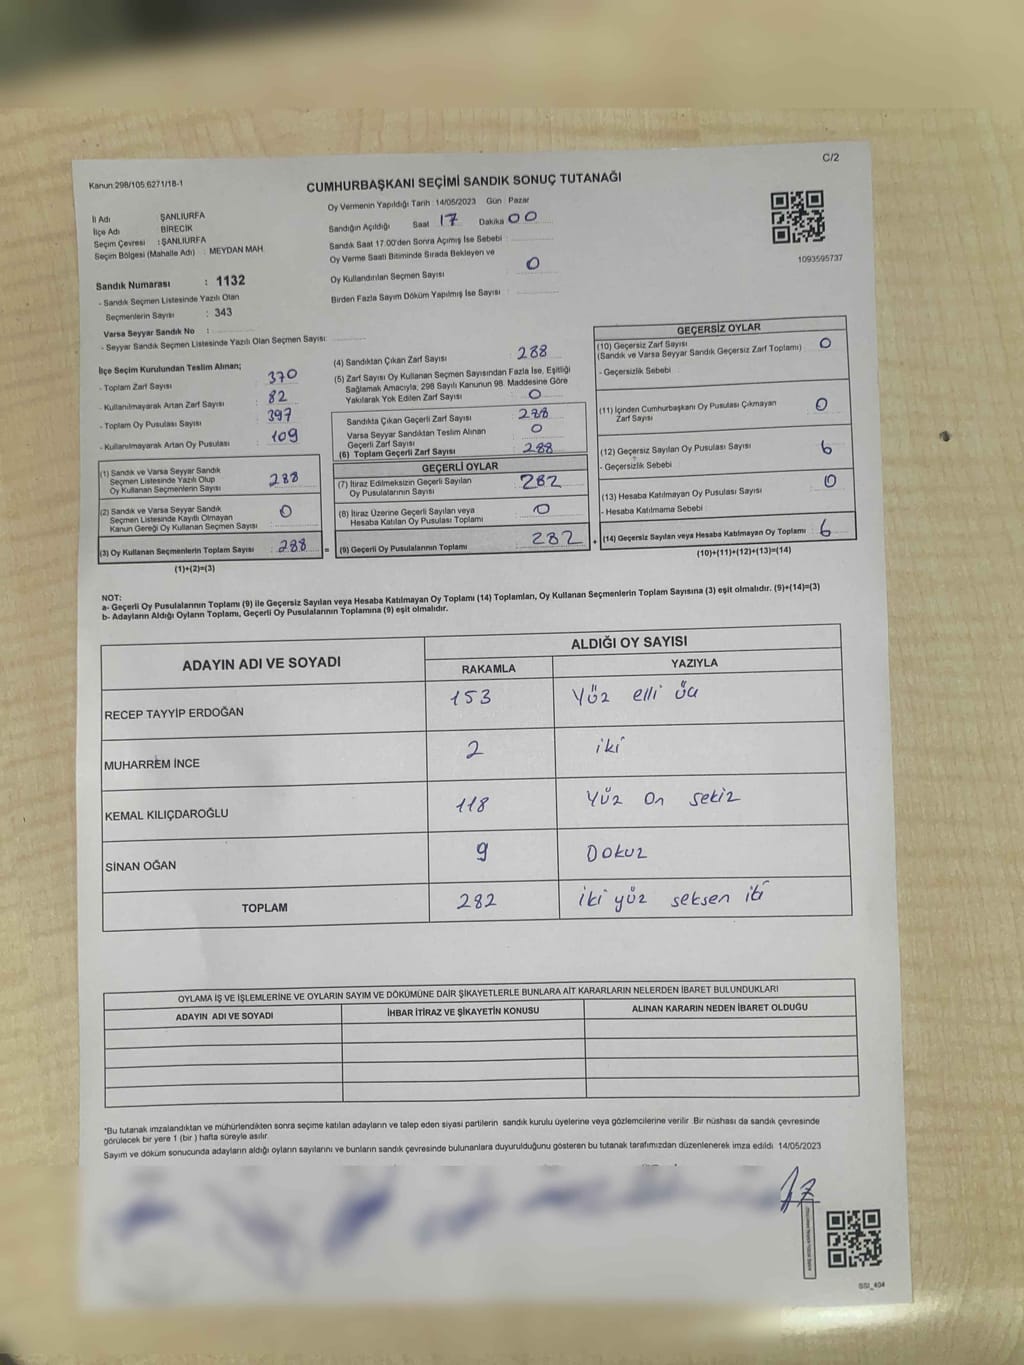 C/2
Kanun:298/105.6271/18-1
CUMHURBAŞKANI SEÇİMİ SANDIK SONUÇ TUTANAĞI
Oy Vermenin Yapıldığı Tarih :14/05/2023 Gün : Pazar
İl Adı : ŞANLIURFA
İlçe Adı : BİRECİK
Seçim Çevresi : ŞANLIURFA
Seçim Bölgesi (Mahalle Adı) : MEYDAN MAH.
Sandığın Açıldığı Saat 17 Dakika 00
Sandık Saat 17.00'den Sonra Açılmış İse Sebebi :
Oy Verme Saati Bitiminde Sırada Bekleyen ve
Oy Kullandırılan Seçmen Sayısı 0
Birden Fazla Sayım Döküm Yapılmış İse Sayısı :
1093595737
Sandık Numarası : 1132
- Sandık Seçmen Listesinde Yazılı Olan
Seçmenlerin Sayısı : 343
Varsa Seyyar Sandık No :
- Seyyar Sandık Seçmen Listesinde Yazılı Olan Seçmen Sayısı:
İlçe Seçim Kurulundan Teslim Alınan;
- Toplam Zarf Sayısı : 370
- Kullanılmayarak Artan Zarf Sayısı : 82
- Toplam Oy Pusulası Sayısı : 397
- Kullanılmayarak Artan Oy Pusulası : 109
(1) Sandık ve Varsa Seyyar Sandık
Seçmen Listesinde Yazılı Olup
Oy Kullanan Seçmenlerin Sayısı : 288
(2) Sandık ve Varsa Seyyar Sandık
Seçmen Listesinde Kayıtlı Olmayan
Kanun Gereği Oy Kullanan Seçmen Sayısı : 0
(3) Oy Kullanan Seçmenlerin Toplam Sayısı : 288
(1)+(2)=(3)
(4) Sandıktan Çıkan Zarf Sayısı : 288
(5) Zarf Sayısı Oy Kullanan Seçmen Sayısından Fazla İse, Eşitliği
Sağlamak Amacıyla, 298 Sayılı Kanunun 98. Maddesine Göre
Yakılarak Yok Edilen Zarf Sayısı : 0
Sandıkta Çıkan Geçerli Zarf Sayısı : 288
Varsa Seyyar Sandıktan Teslim Alınan
Geçerli Zarf Sayısı : 0
(6) Toplam Geçerli Zarf Sayısı : 288
GEÇERLİ OYLAR
(7) İtiraz Edilmeksizin Geçerli Sayılan
Oy Pusulalarının Sayısı : 282
(8) İtiraz Üzerine Geçerli Sayılan veya
Hesaba Katılan Oy Pusulası Toplamı : 0
= (9) Geçerli Oy Pusulalarının Toplamı : 282
GEÇERSİZ OYLAR
(10) Geçersiz Zarf Sayısı
(Sandık ve Varsa Seyyar Sandık Geçersiz Zarf Toplamı) : 0
- Geçersizlik Sebebi :
(11) İçinden Cumhurbaşkanı Oy Pusulası Çıkmayan
Zarf Sayısı : 0
(12) Geçersiz Sayılan Oy Pusulası Sayısı : 6
- Geçersizlik Sebebi :
(13) Hesaba Katılmayan Oy Pusulası Sayısı : 0
- Hesaba Katılmama Sebebi :
+ (14) Geçersiz Sayılan veya Hesaba Katılmayan Oy Toplamı : 6
(10)+(11)+(12)+(13)=(14)
NOT:
a- Geçerli Oy Pusulalarının Toplamı (9) ile Geçersiz Sayılan veya Hesaba Katılmayan Oy Toplamı (14) Toplamları, Oy Kullanan Seçmenlerin Toplam Sayısına (3) eşit olmalıdır. (9)+(14)=(3)
b- Adayların Aldığı Oyların Toplamı, Geçerli Oy Pusulalarının Toplamına (9) eşit olmalıdır.
ADAYIN ADI VE SOYADI
ALDIĞI OY SAYISI
RAKAMLA YAZIYLA
RECEP TAYYİP ERDOĞAN 153 Yüz elli üç
MUHARREM İNCE 2 iki
KEMAL KILIÇDAROĞLU 118 Yüz On sekiz
SİNAN OĞAN 9 Dokuz
TOPLAM 282 iki yüz seksen iki
OYLAMA İŞ VE İŞLEMLERİNE VE OYLARIN SAYIM VE DÖKÜMÜNE DAİR ŞİKAYETLERLE BUNLARA AİT KARARLARIN NELERDEN İBARET BULUNDUKLARI
ADAYIN ADI VE SOYADI İHBAR İTİRAZ VE ŞİKAYETİN KONUSU ALINAN KARARIN NEDEN İBARET OLDUĞU
*Bu tutanak imzalandıktan ve mühürlendikten sonra seçime katılan adayların ve talep eden siyasi partilerin sandık kurulu üyelerine veya gözlemcilerine verilir. Bir nüshası da sandık çevresinde
görülecek bir yere 1 (bir ) hafta süreyle asılır.
Sayım ve döküm sonucunda adayların aldığı oyların sayılarını ve bunların sandık çevresinde bulunanlara duyurulduğunu gösteren bu tutanak tarafımızdan düzenlenerek imza edildi. 14/05/2023
SSI_404